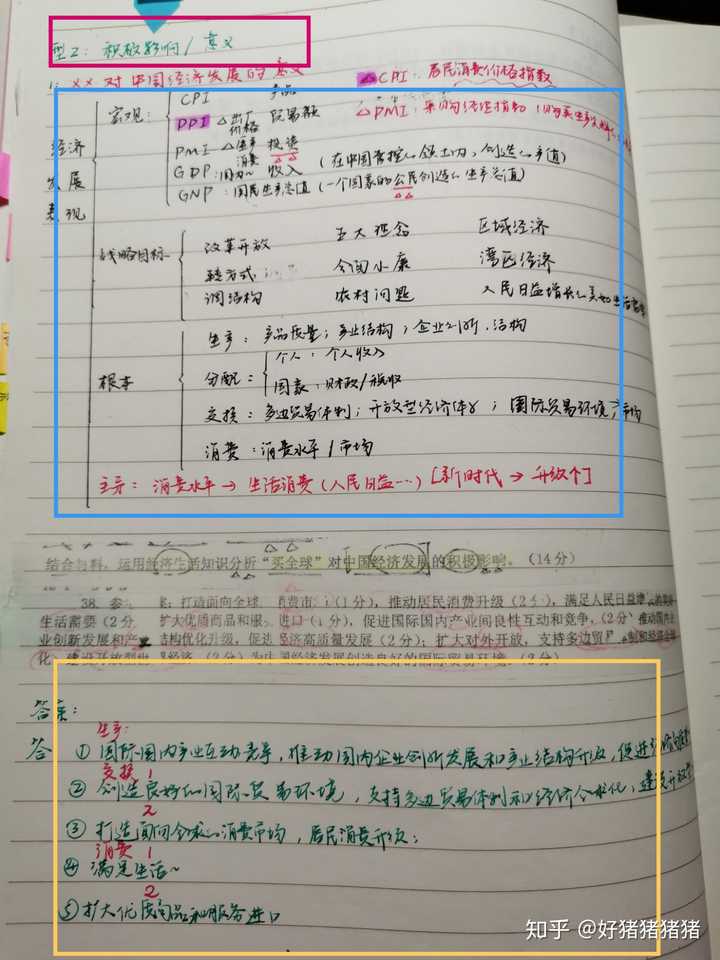 型2: 积极影响/意义
1: ×× 对中国经济发展的意义
△CPI: 居民消费价格指数
△PMI: 采购经理指数
经济发展表现
宏观: CPI 产品
PPI △出厂价格 贸易额
PMI △生产 投资
消费
GDP: 国内~ 收入 (在中国掌控の领土内, 创造の产值)
GNP: 国民生产总值 (一个国家的公民创造の生产总值)
战略目标 改革开放 五大理念 区域经济
转方式 全面小康 湾区经济
调结构 农村问题 人民日益增长の美好生活需要
根本 生产: 产品质量; 产业结构; 企业创新、结构
分配: 个人: 个人收入
国家: 财政/税收
交换: 多边贸易体制; 开放型经济体系; 国际贸易环境/市场
消费: 消费水平/市场
主导: 消费水平→生活消费(人民日益…) [新时代→升级个]
结合材料,运用经济生活知识分析“买全球”对中国经济发展的积极影响。(14分)
38. 打造面向全球 消费市 (1分),推动居民消费升级(2分),满足人民日益增 的美好
生活需要(2分 扩大优质商品和服 进口(1分),促进国际国内产业间良性互动和竞争,(2分)推动国内企
业创新发展和产业结构优化升级,促进经济高质量发展(2分);扩大对外开放,支持多边贸 制和经济全球
化,建设开放型 经济(2分)为中国经济发展创造良好的国际贸易环境。(2分)
答案:
生产:
答 ① 国际国内产业互动竞争,推动国内企业创新发展和产业结构升级,促进
交换 1
② 创造良好の国际贸易环境,支持多边贸易体制和经济全球化,建设开放型
2
③ 打造面向全球の消费市场,居民消费升级;
消费 1
④ 满足生活~
2
⑤ 扩大优质商品和服务进口
知乎 @好猪猪猪猪